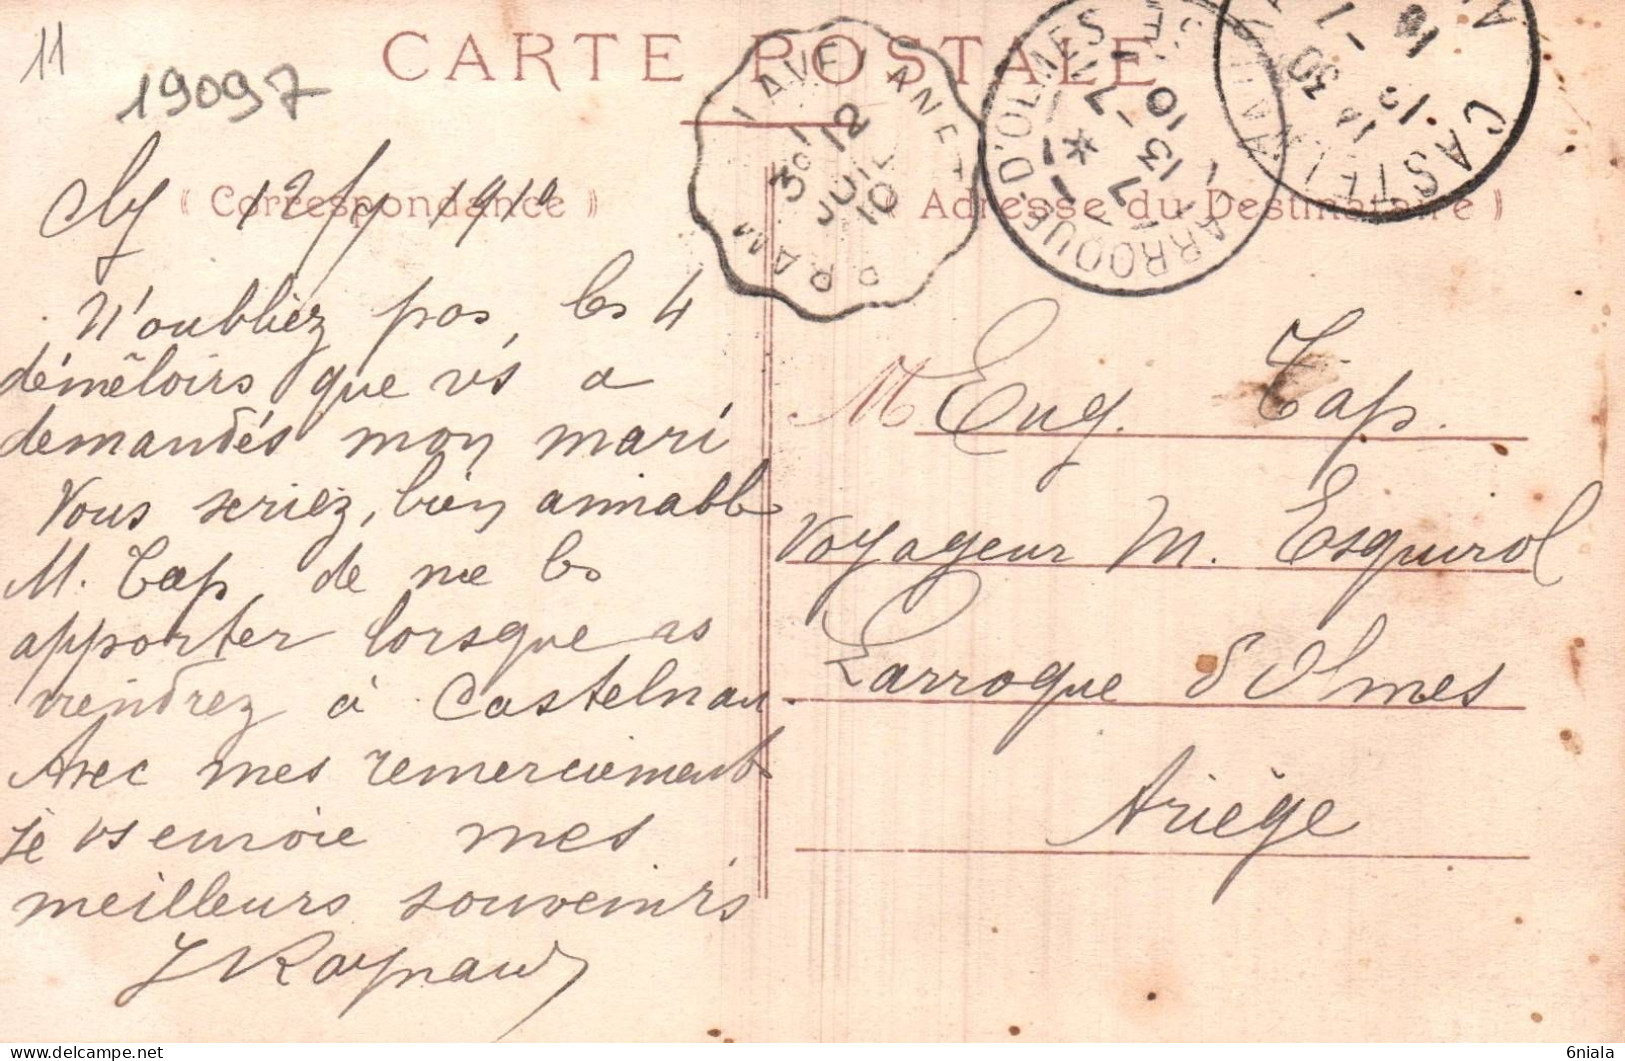 11
19097
CARTE POSTALE
LAVELANET
3° 12
JUIL
10
BRAM
LARROQUE-D'OLMES
13-7
10
CASTELNAUDARY
14 30
12-7
10
« Correspondance »
« Adresse du Destinataire »
12/7 1910
N'oubliez pas, les 4
démêloirs que vs a
demandés mon mari
Vous seriez, bien aimable
M. Tap de me les
apporter lorsque vs
viendrez à Castelnau.
Avec mes remerciements
je vs envoie mes
meilleurs souvenirs
J Raynaud
M Eug. Tap.
Voyageur M. Esquirol
Larroque d'Olmes
Ariège
6niala